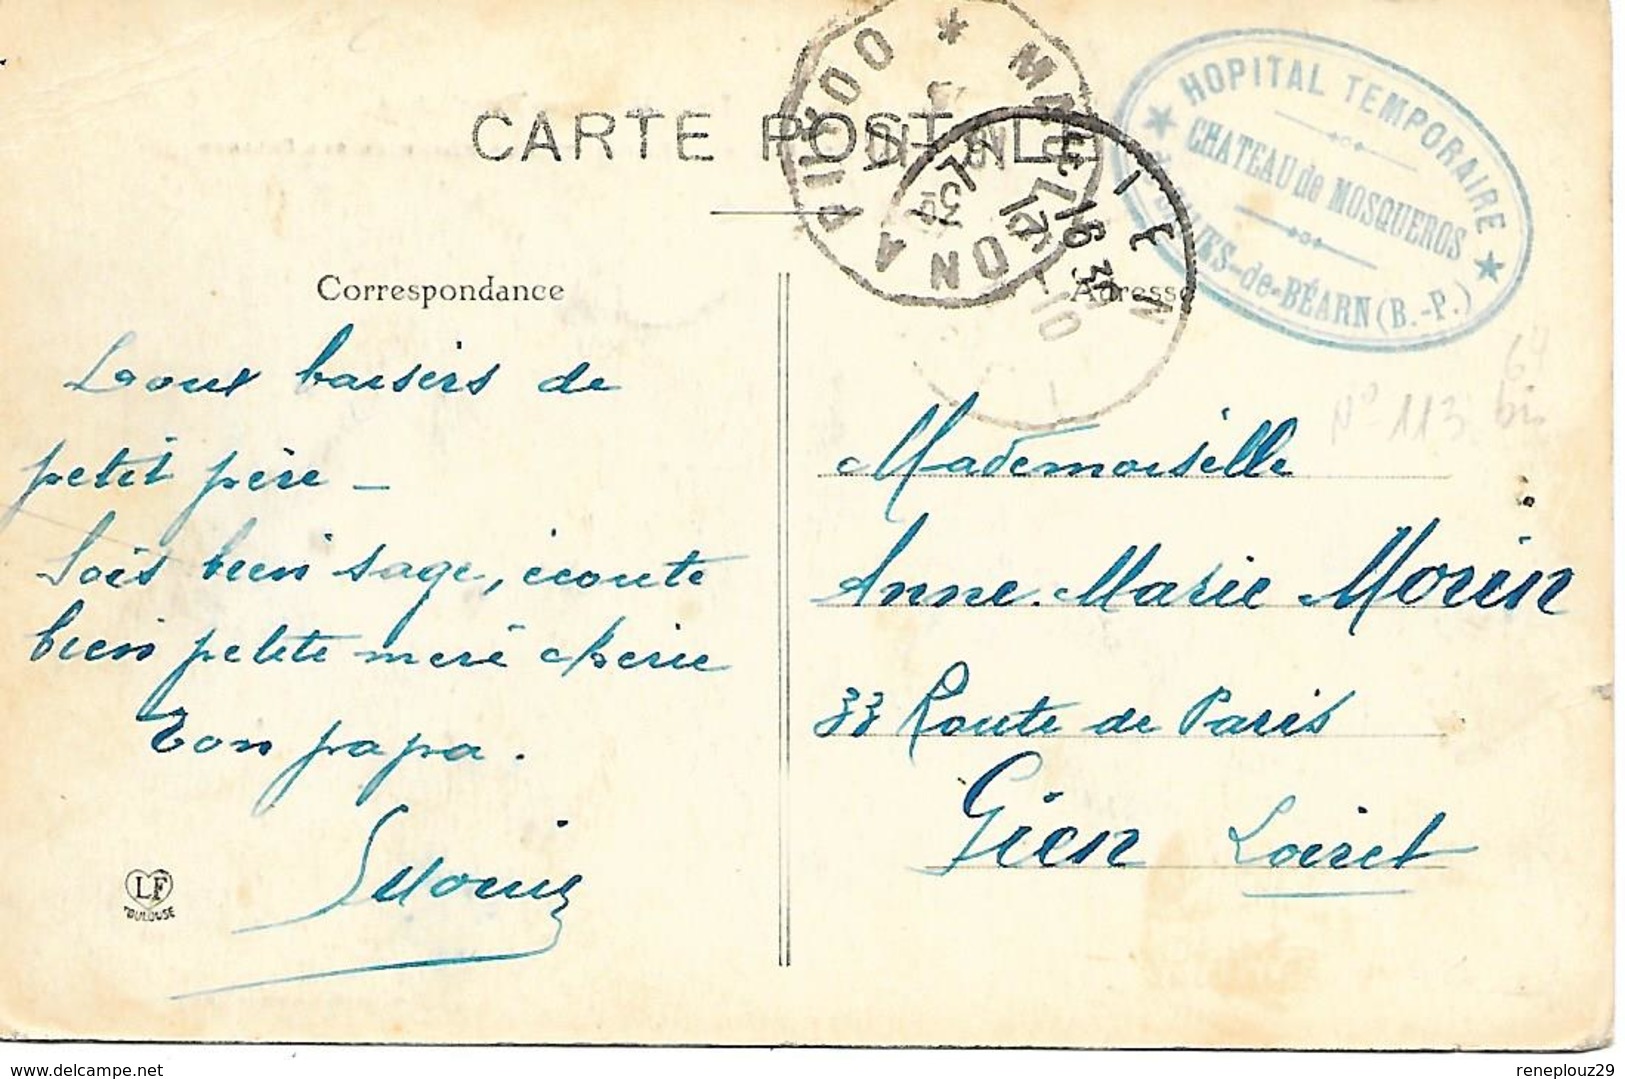 CARTE POSTALE
HOPITAL TEMPORAIRE
CHATEAU de MOSQUEROS
-de-BÉARN (B.-P.)
PUYOO * MA
GIEN
Correspondance
Adresse
Doux baisers de
petit père -
Sois bien sage, écoute
bien petite mère chérie
Ton papa.
LF
TOULOUSE
64
N° 113 bis
Mademoiselle
Anne. Marie Morin
33 Route de Paris
Gien Loiret
delcampe.net
reneplouz29